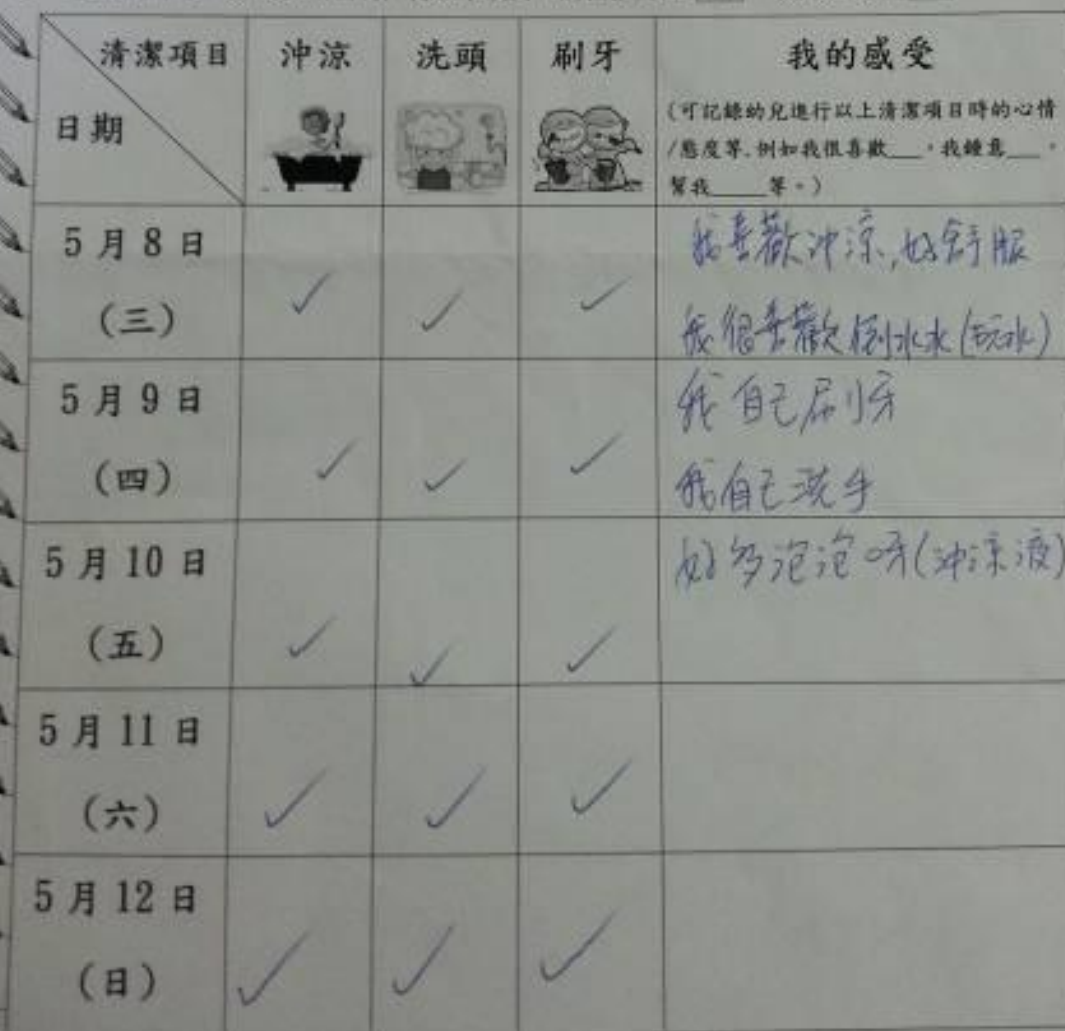 清潔項目 沖涼 洗頭 刷牙 我的感受
日期
(可記錄幼兒進行以上清潔項目時的心情
/態度等,例如我很喜歡___,我鍾意___,
幫我_____等。)
5月8日
(三)
✓ ✓ ✓
我喜歡沖涼,好舒服
我很喜歡倒水水(玩水)
5月9日
(四)
✓ ✓ ✓
我自己刷牙
我自己洗手
5月10日
(五)
✓ ✓ ✓
好多泡泡呀(沖涼液)
5月11日
(六)
✓ ✓ ✓
5月12日
(日)
✓ ✓ ✓